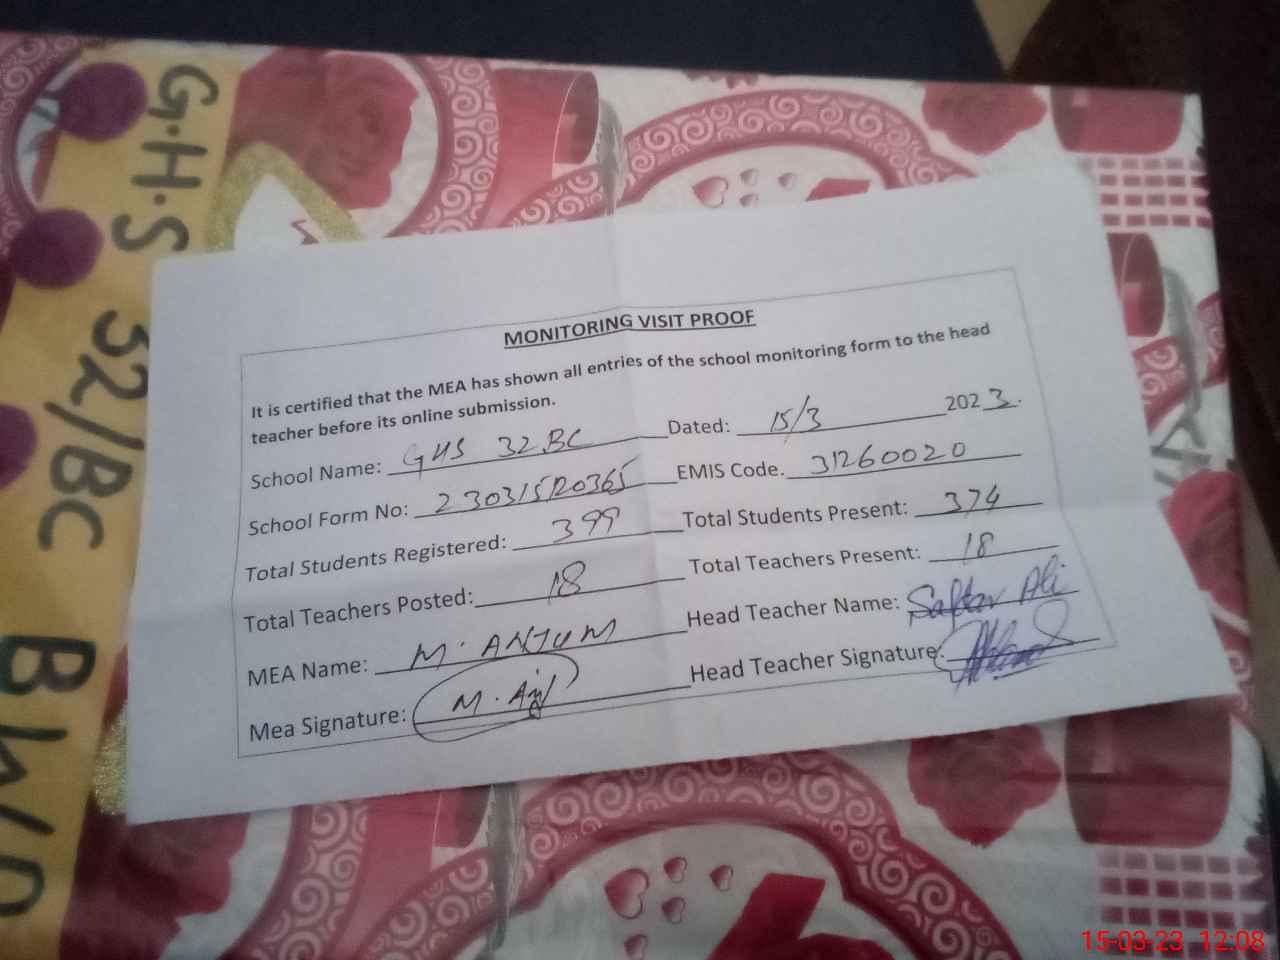 G.H.S 32/BC BWP
MONITORING VISIT PROOF
It is certified that the MEA has shown all entries of the school monitoring form to the head
teacher before its online submission.
School Name: GHS 32.BC Dated: 15/3 2023.
School Form No: 230315120365 EMIS Code. 31260020
Total Students Registered: 399 Total Students Present: 374
Total Teachers Posted: 18 Total Teachers Present: 18
MEA Name: M. ANJUM Head Teacher Name: Safdar Ali
Mea Signature: M. Anj Head Teacher Signature:
15-03-23 12:08